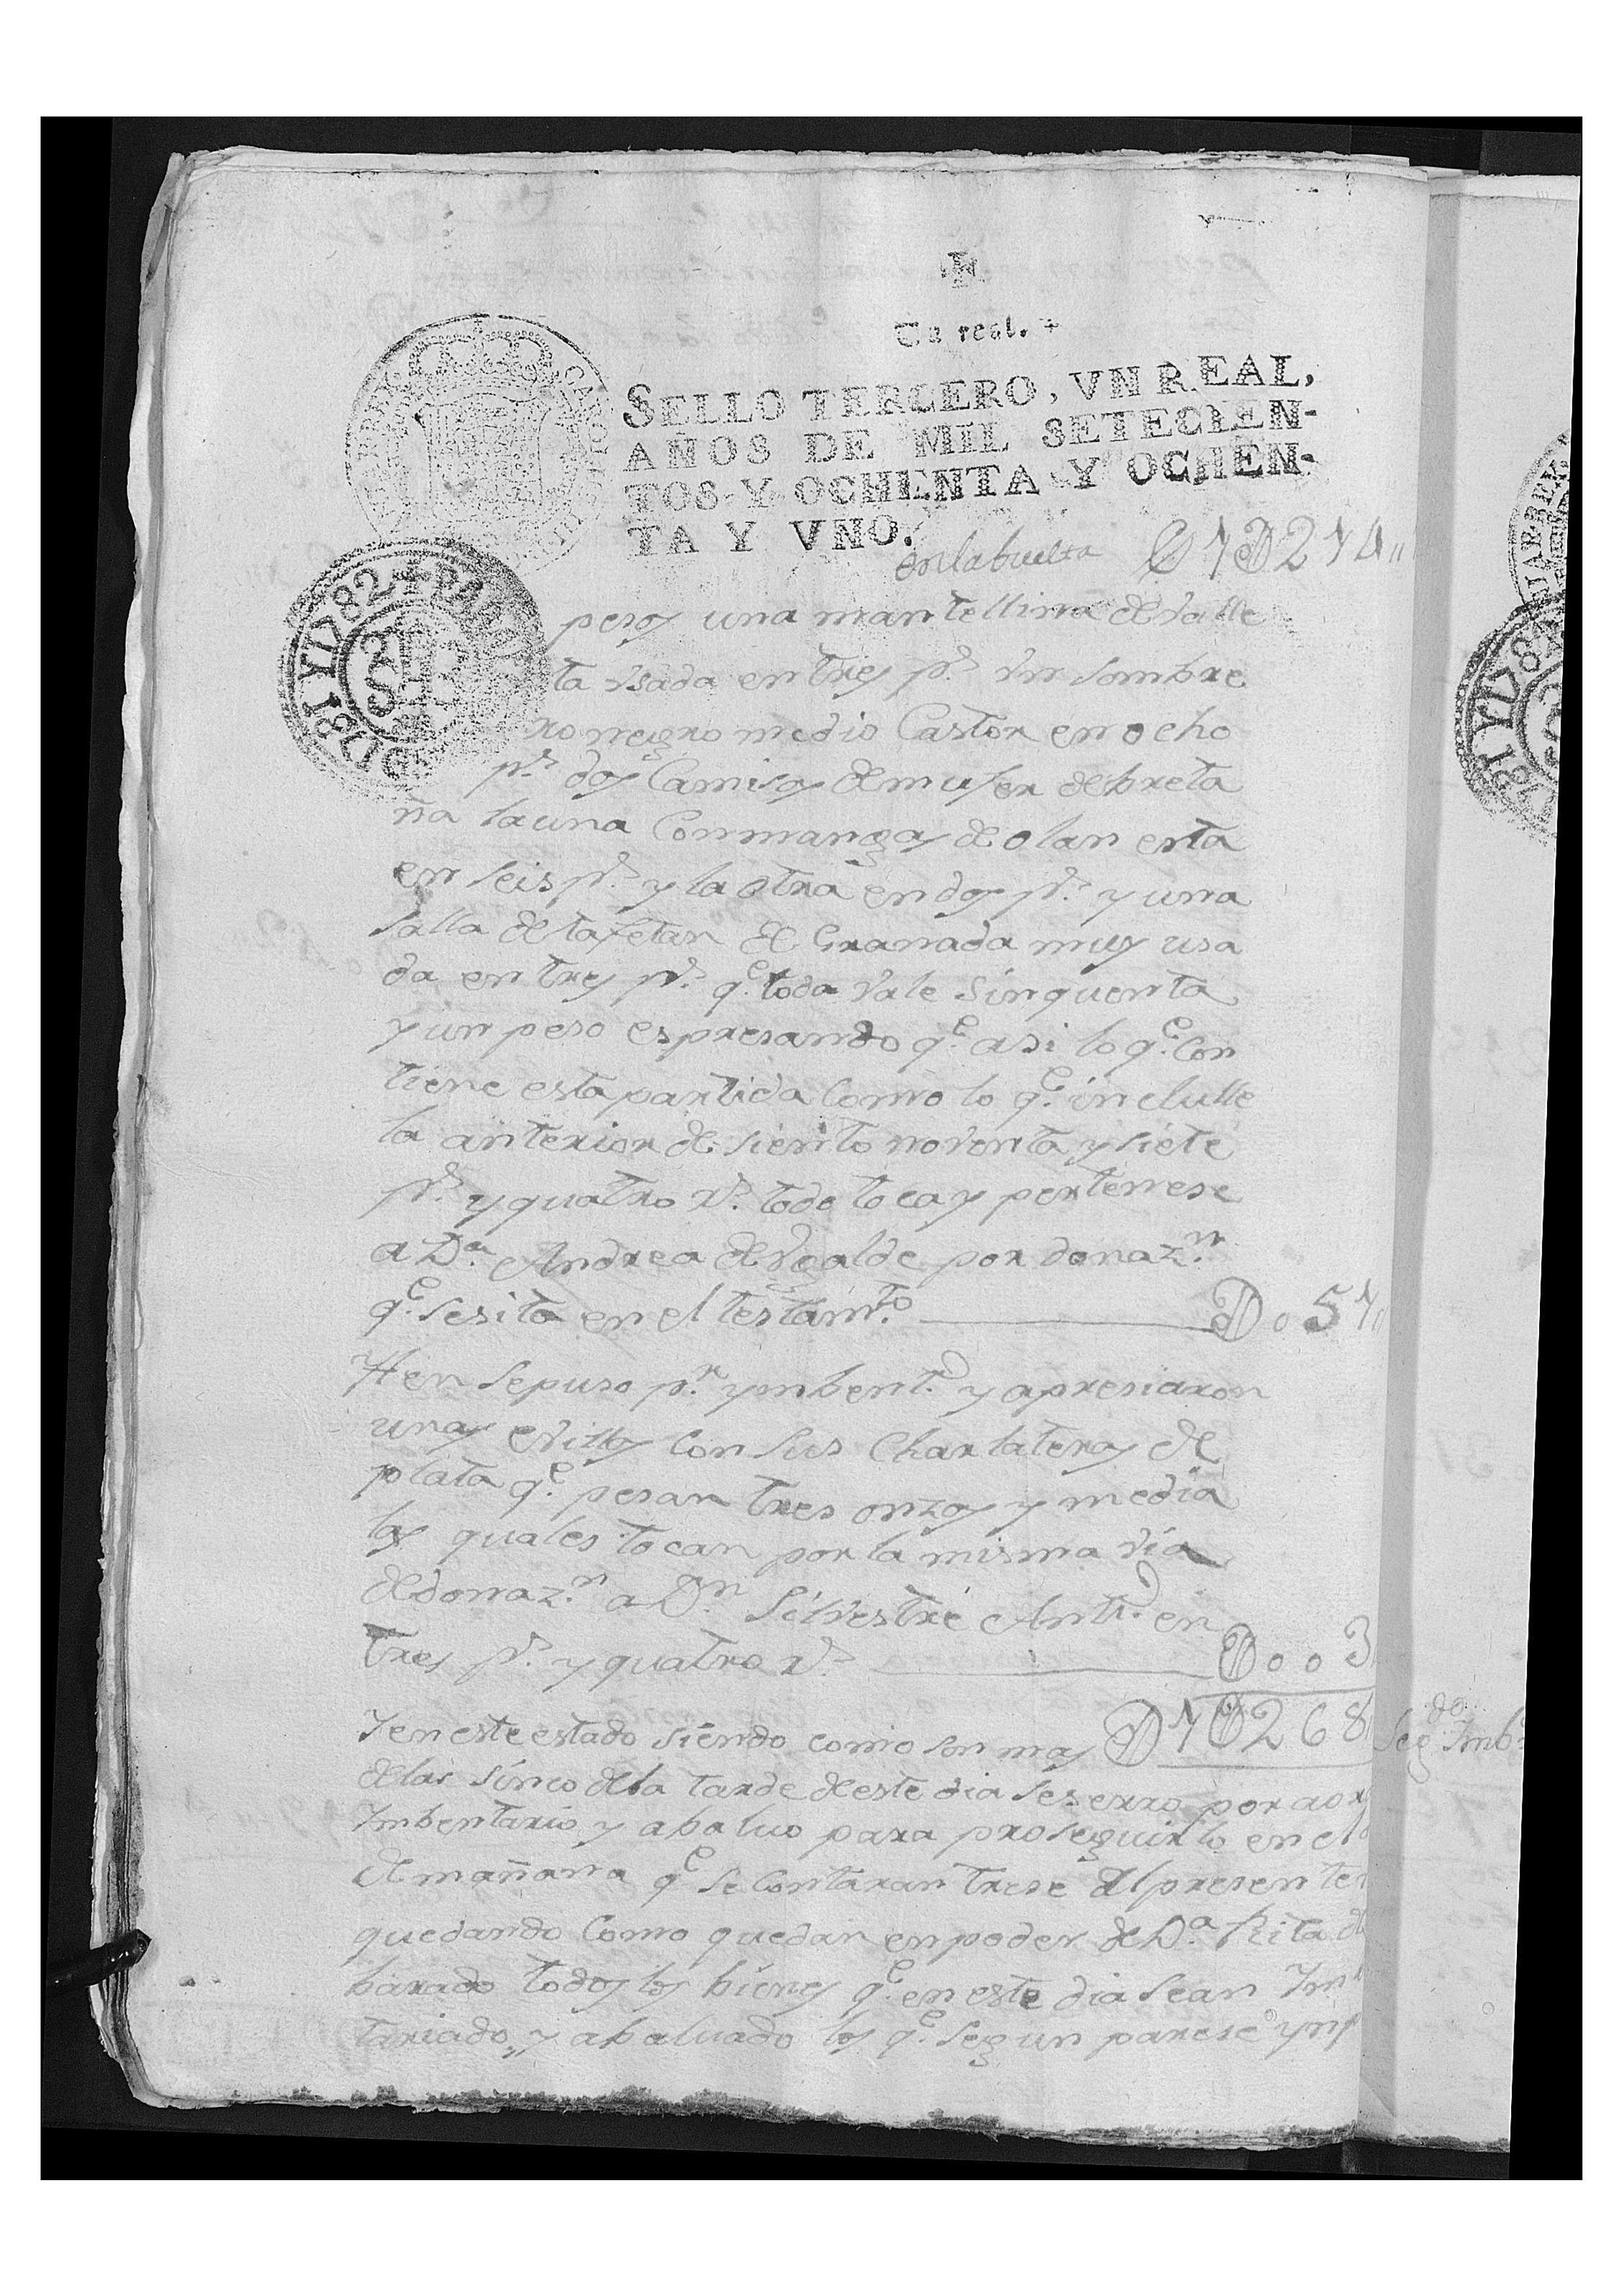 Un real.
SELLO TERCERO, VN REAL,
AÑOS DE MIL SETECIEN-
TOS Y OCHENTA Y OCHEN-
TA Y VNO.
en la buelta 1214
pesos una mantellina de valle
ta vsada en tres ps. vn sombre
ro negro medio Castor en ocho
ps. dos Camisas de muger de breta
ña la una Con mangas de olan esta
en seis ps. y la otra en dos ps. y una
salla de tafetan de Granada muy usa
da en tres ps. qe. toda vale sinquenta
y un peso espresando qe. asi lo qe. Con
tiene esta partida Como lo qe. inclulle
la anterior de siento noventa y siete
ps. y quatro rs. todo toca y pertenese
a Da. Andrea de Vgalde por donazn.
qe. se sita en el testamto. 051
Yten se puso pr. ymbento. y apresiaron
unas evillas Con sus Charlateras de
plata qe. pesan tres onzas y media
las quales tocan por la misma via
de donazn. a Dn. Silvestre Anto. en
tres ps. y quatro rs. 003
Y en este estado siendo como son mas 1268
de las sinco de la tarde de este dia se serro por aora
Ymbentario y abaluo para proseguirlo en el
de mañana qe. se Contaran trese del presente
quedando Como quedan en poder de Da. Rita
barado todos los bienes qe. en este dia sean
tariado, y abaluado los qe. segun parese